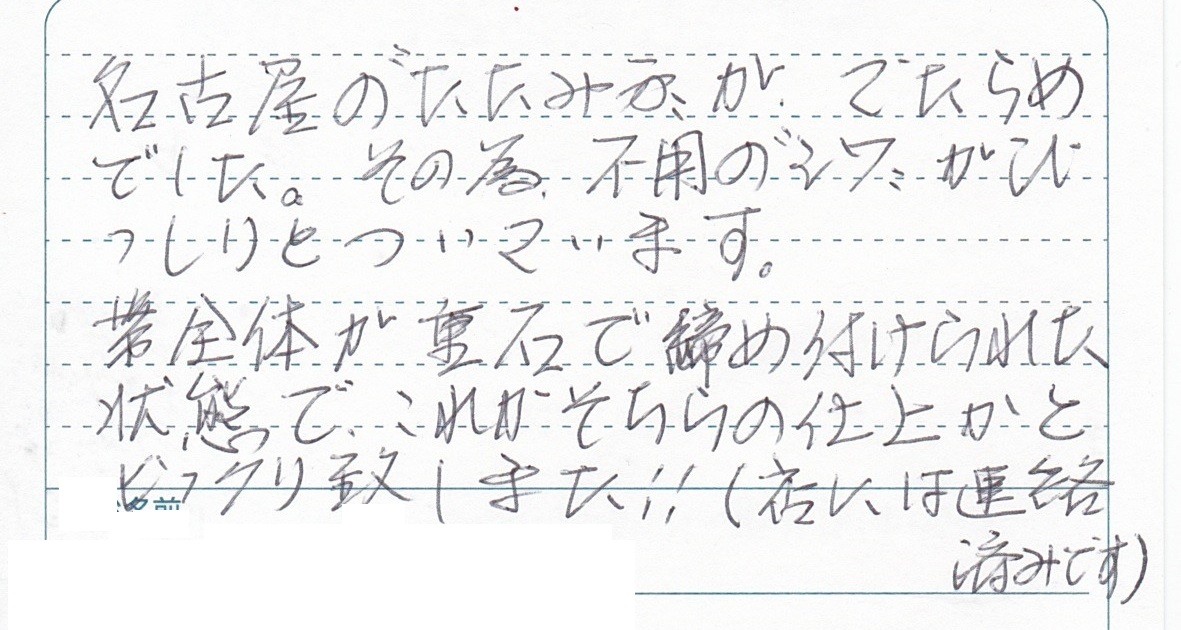 名古屋のたたみ方が、でたらめ
でした。その為、不用のシワがび
っしりとついています。
帯全体が重石で締め付けられた
状態で、これがそちらの仕上かと
ビックリ致しました!!(店には連絡
済みです)
名前